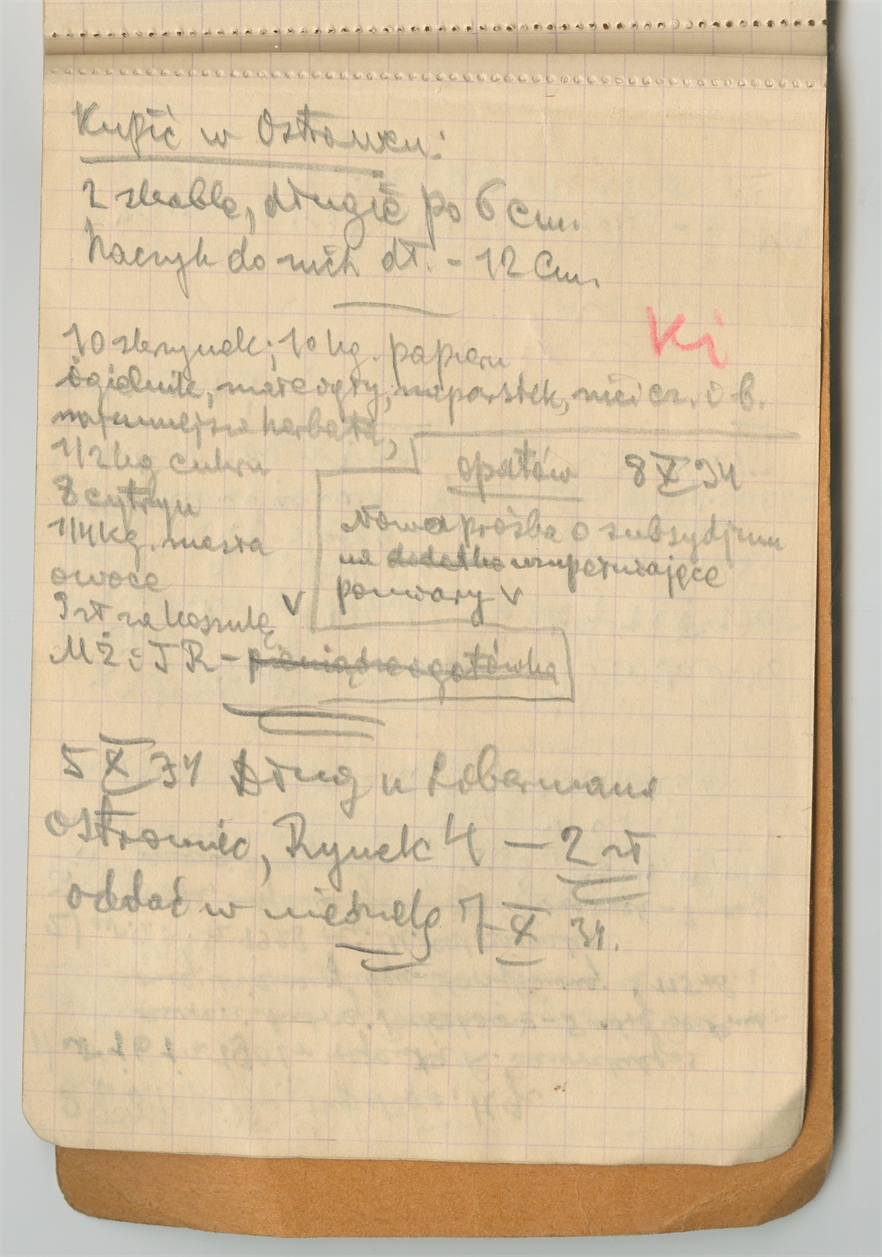 Kupić w Ostrowcu:
2 skoble, długie po 6 cm.
haczyk do nich dł. - 12 cm.
Ki
10 skrzynek; 10 kg. papieru
igielnik, małe igły, naparstek, nici cz. i b.
herbata,
1/2 kg cukru
8 cytryn
1/4 kg. masła
owoce
9 zł za koszulę V
MŻ i JR - pieniądze gotówka
Opatów 8 X 34
Nowa prośba o subsydjum
na dodatko uzupełniające
pomiary V
5 X 34 Dług u Lobermana
Ostrowiec, Rynek 4 — 2 zł
oddać w niedzielę 7 X 34.